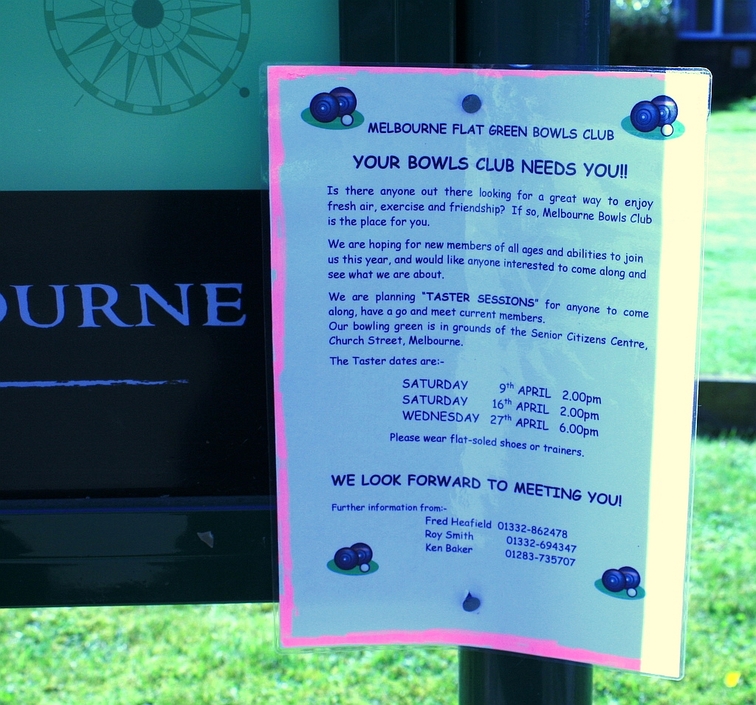 OURNE
MELBOURNE FLAT GREEN BOWLS CLUB
YOUR BOWLS CLUB NEEDS YOU!!
Is there anyone out there looking for a great way to enjoy
fresh air, exercise and friendship? If so, Melbourne Bowls Club
is the place for you.
We are hoping for new members of all ages and abilities to join
us this year, and would like anyone interested to come along and
see what we are about.
We are planning "TASTER SESSIONS" for anyone to come
along, have a go and meet current members.
Our bowling green is in grounds of the Senior Citizens Centre,
Church Street, Melbourne.
The Taster dates are:-
SATURDAY 9th APRIL 2.00pm
SATURDAY 16th APRIL 2.00pm
WEDNESDAY 27th APRIL 6.00pm
Please wear flat-soled shoes or trainers.
WE LOOK FORWARD TO MEETING YOU!
Further information from:-
Fred Heafield 01332-862478
Roy Smith 01332-694347
Ken Baker 01283-735707